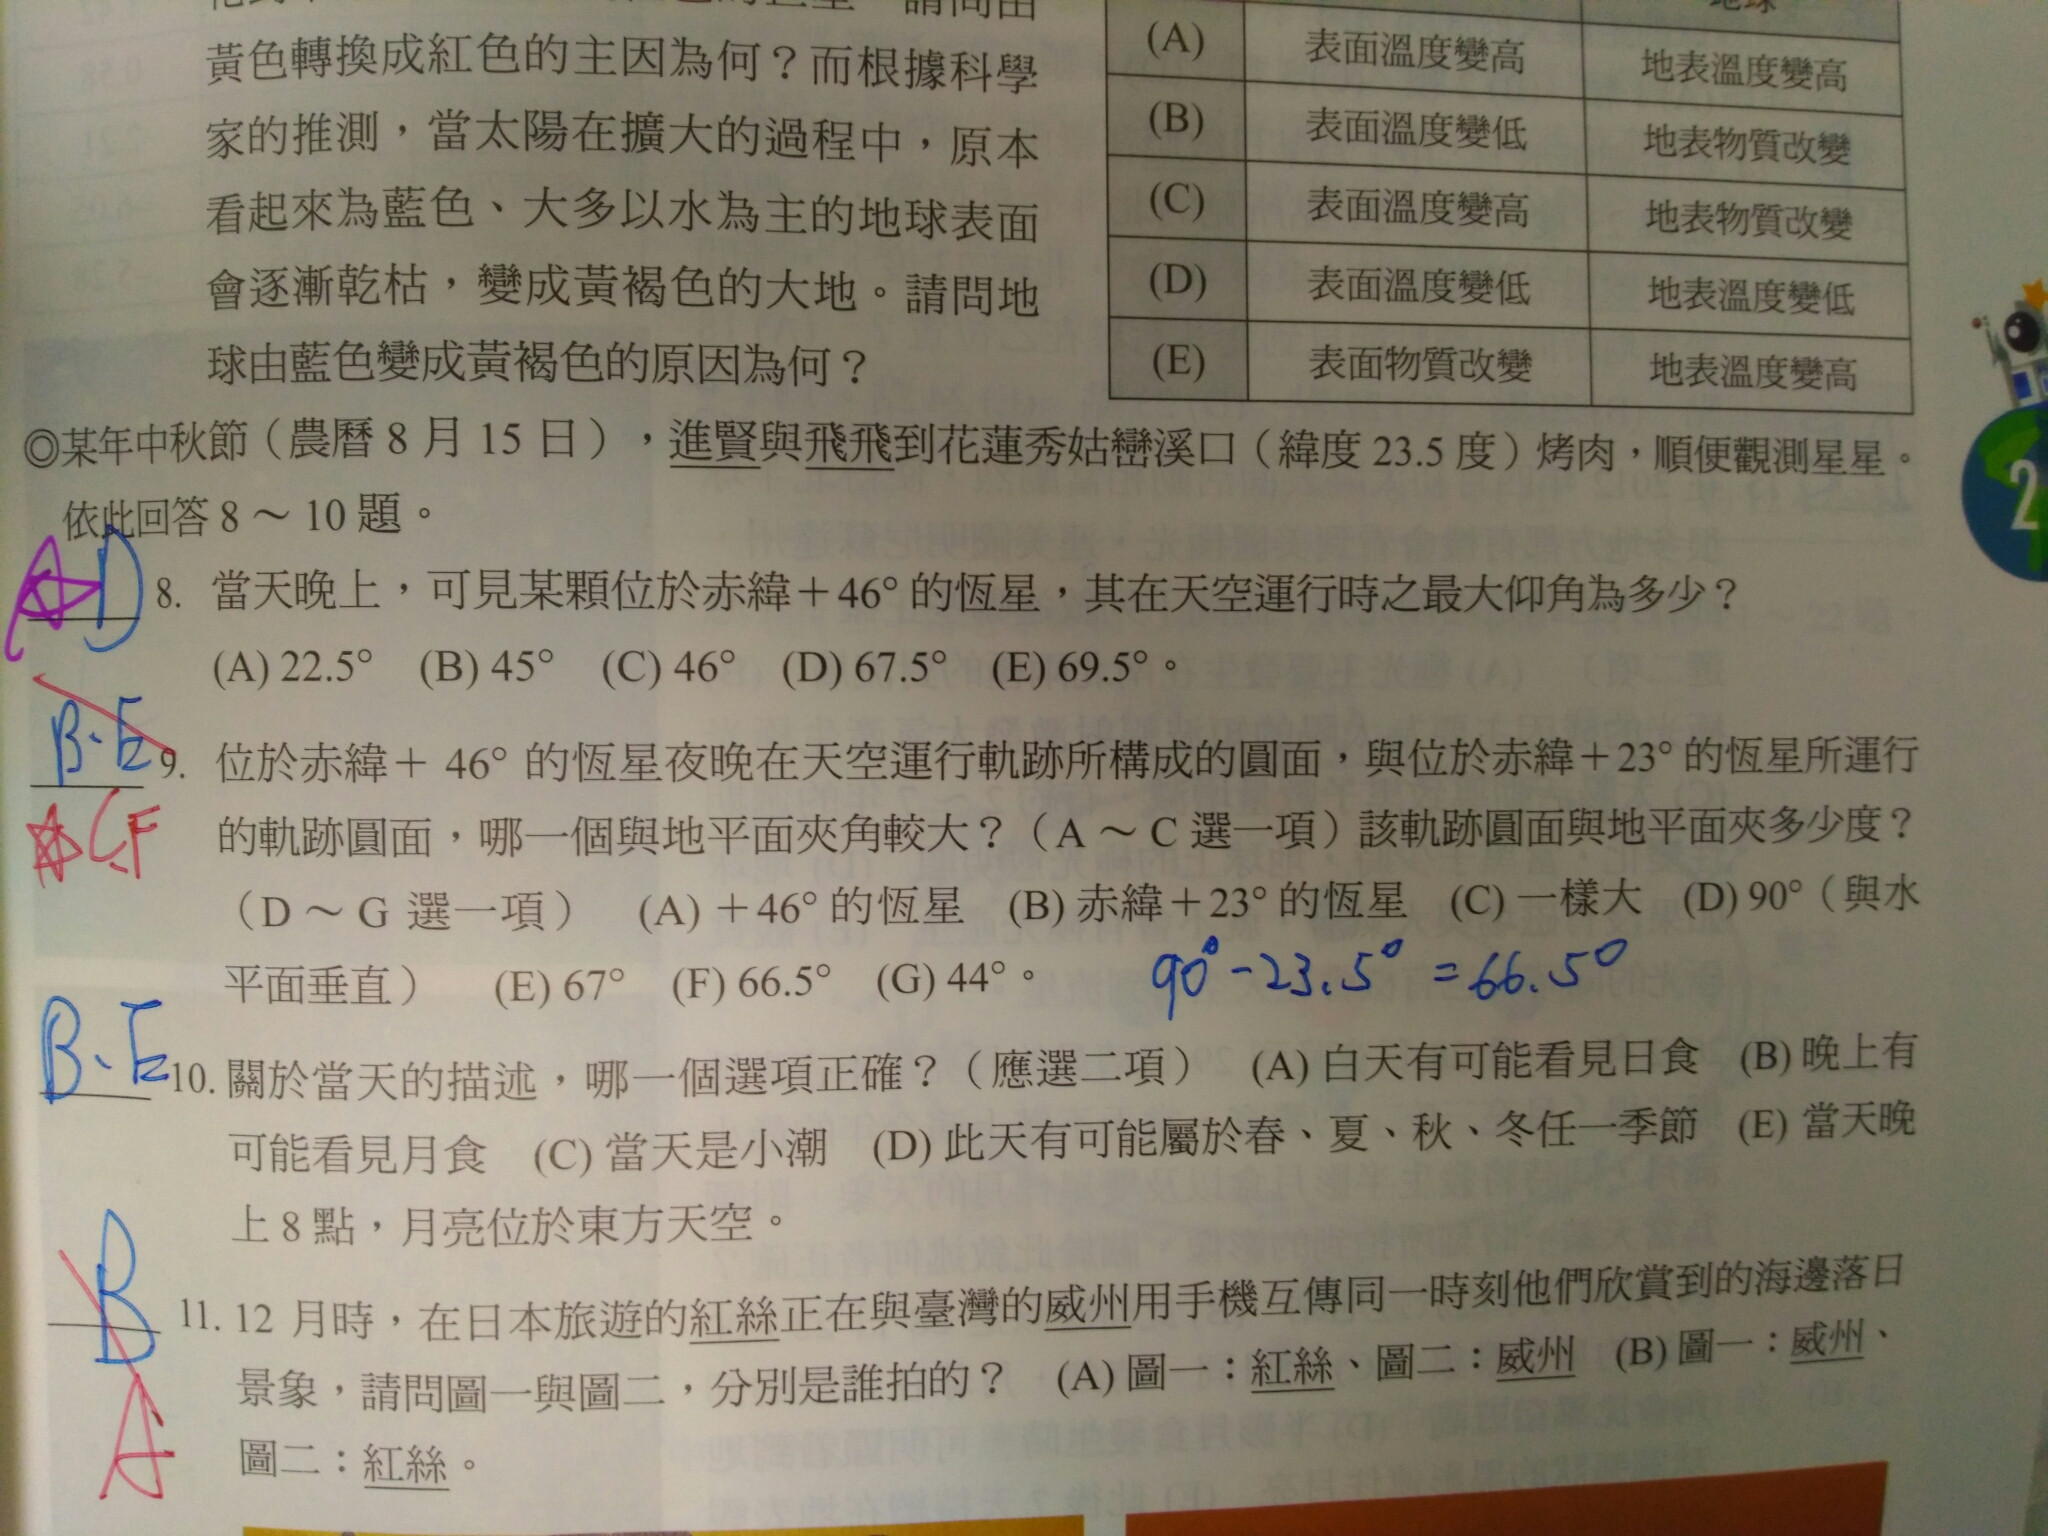 黃色轉換成紅色的主因為何？而根據科學
家的推測，當太陽在擴大的過程中，原本
看起來為藍色、大多以水為主的地球表面
會逐漸乾枯，變成黃褐色的大地。請問地
球由藍色變成黃褐色的原因為何？
地球
(A) 表面溫度變高 地表溫度變高
(B) 表面溫度變低 地表物質改變
(C) 表面溫度變高 地表物質改變
(D) 表面溫度變低 地表溫度變低
(E) 表面物質改變 地表溫度變高
◎某年中秋節（農曆 8 月 15 日），進賢與飛飛到花蓮秀姑巒溪口（緯度 23.5 度）烤肉，順便觀測星星。
依此回答 8 ～ 10 題。
☆D 8. 當天晚上，可見某顆位於赤緯＋46° 的恆星，其在天空運行時之最大仰角為多少？
(A) 22.5° (B) 45° (C) 46° (D) 67.5° (E) 69.5°。
B、E 9. 位於赤緯＋ 46° 的恆星夜晚在天空運行軌跡所構成的圓面，與位於赤緯＋23° 的恆星所運行
☆C.F 的軌跡圓面，哪一個與地平面夾角較大？（A ～ C 選一項）該軌跡圓面與地平面夾多少度？
（D ～ G 選一項） (A) ＋46° 的恆星 (B) 赤緯＋23° 的恆星 (C) 一樣大 (D) 90°（與水
平面垂直） (E) 67° (F) 66.5° (G) 44°。 90°-23.5°=66.5°
B、E 10. 關於當天的描述，哪一個選項正確？（應選二項） (A) 白天有可能看見日食 (B) 晚上有
可能看見月食 (C) 當天是小潮 (D) 此天有可能屬於春、夏、秋、冬任一季節 (E) 當天晚
上 8 點，月亮位於東方天空。
B 11. 12 月時，在日本旅遊的紅絲正在與臺灣的威州用手機互傳同一時刻他們欣賞到的海邊落日
A 景象，請問圖一與圖二，分別是誰拍的？ (A) 圖一：紅絲、圖二：威州 (B) 圖一：威州、
圖二：紅絲。
2